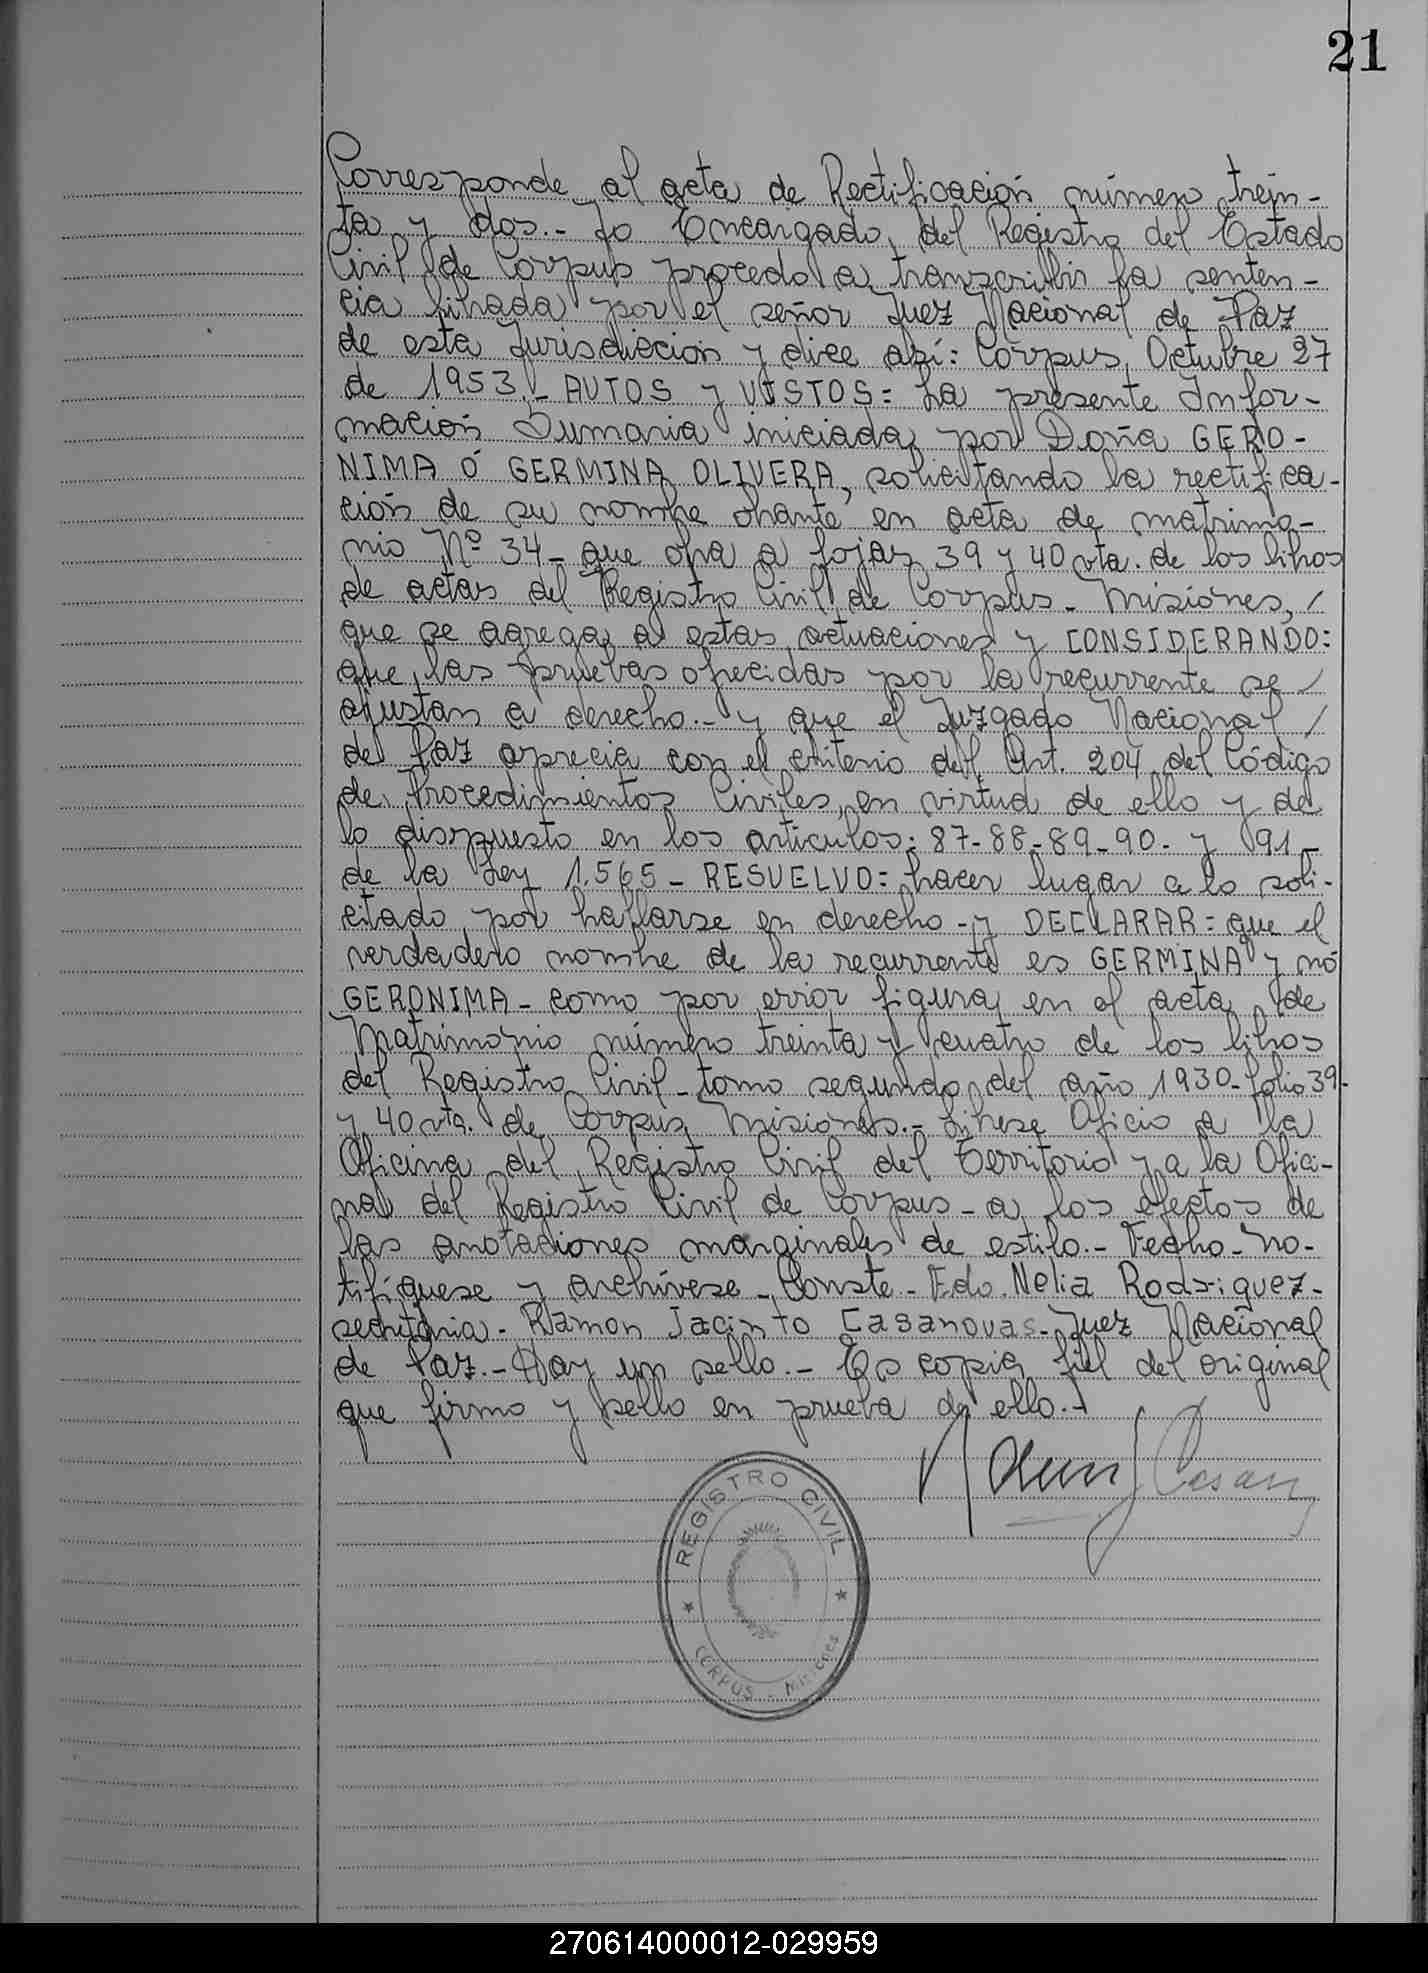 21
Corresponde al acta de Rectificación número trein-
ta y dos.- Yo Encargado del Registro del Estado
Civil de Corpus procedo a transcribir la senten-
cia librada por el señor Juez Nacional de Paz
de esta Jurisdiccion y dice así: Corpus, Octubre 27
de 1953.- AUTOS y VISTOS= La presente Infor-
macion Sumaria iniciada por Doña GERO-
NIMA Ó GERMINA OLIVERA, solicitando la rectifica-
ción de su nombre obrante en acta de matrimo-
nio Nº 34- que obra a fojas 39 y 40 vta. de los libros
de actas del Registro Civil de Corpus- Misiones, /
que se agrega a estas actuaciones y CONSIDERANDO:
que las pruebas ofrecidas por la recurrente se /
ajustan a derecho.- y que el Juzgado Nacional /
de Paz aprecia con el criterio del Art. 204 del Código
de Procedimientos Civiles, en virtud de ello y de
lo dispuesto en los articulos: 87-88-89-90- y 91-
de la Ley 1.565- RESUELVO= hacer lugar a lo soli-
citado por hallarse en derecho- y DECLARAR= que el
verdadero nombre de la recurrente es GERMINA y nó
GERONIMA- como por error figura en el acta de
Matrimonio número treinta y cuatro de los libros
del Registro Civil- tomo segundo del año 1930- folio 39-
y 40 vta. de Corpus Misiones.- Librese Oficio a la
Oficina del Registro Civil del Territorio y a la Ofici-
na del Registro Civil de Corpus- a los efectos de
las anotaciones marginales de estilo.- Fecho- No-
tifíquese y archívese- Conste- Fdo. Nelia Rodriguez-
secretaria- Ramon Jacinto Casanovas- Juez Nacional
de Paz.- Hay un sello.- Es copia fiel del original
que firmo y sello en prueba de ello.-
REGISTRO CIVIL
CORPUS - Misiones
270614000012-029959